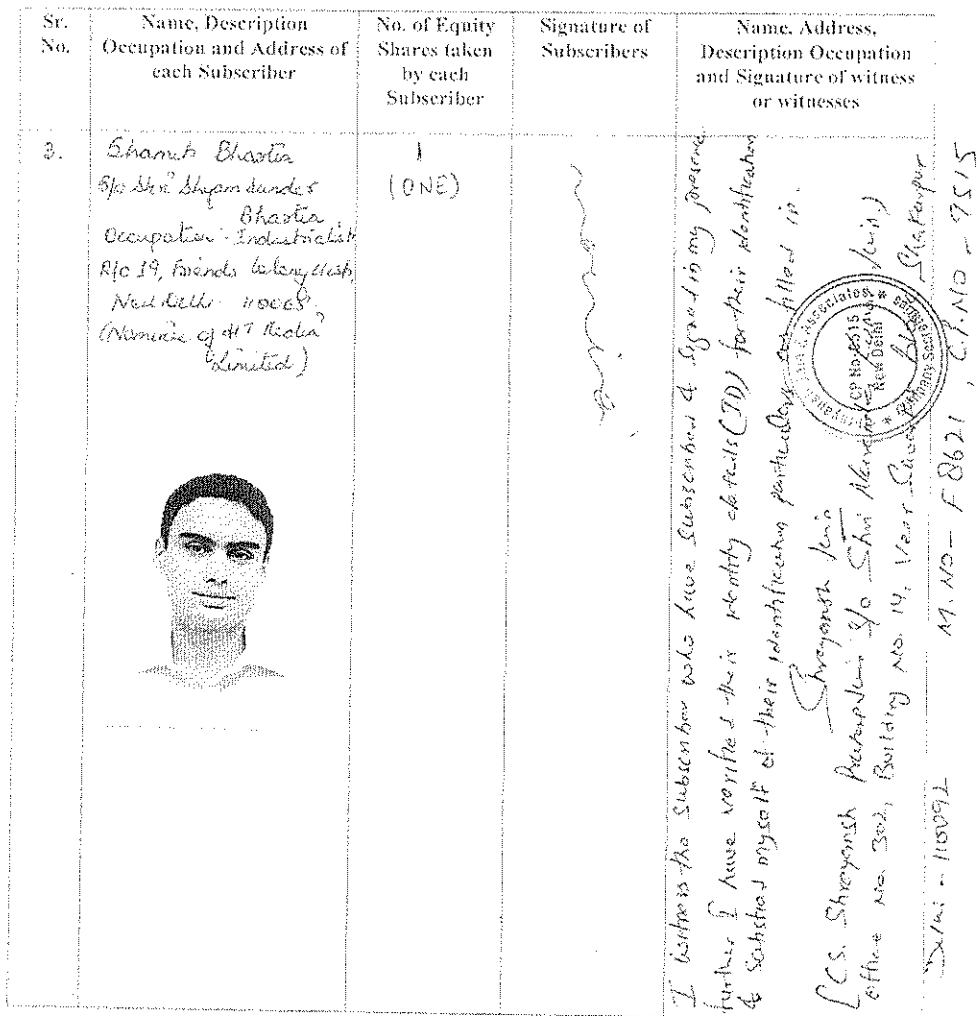 Sr. No.
Name, Description Occupation and Address of each Subscriber
No. of Equity Shares taken by each Subscriber
Signature of Subscribers
Name, Address, Description Occupation and Signature of witness or witnesses
3.
Bhartia
S/o Shri Shyam Sunder
Bhartia
Occupation - Industrialist
R/o 19, Friends Colony (West),
New Delhi
(Nominee of HT Media
Limited)
1
(ONE)
I witness the Subscriber who have Subscribed & Signed in my presence
further I have verified their identity details (ID) for their identification
& satisfied myself of their identification particulars as filled in.
Shreyansh Jain
[C.S. Shreyansh S/o Shri
Office No. 302, Building No. 14, Veer Shakarpur
Delhi - 110092 M. NO - F 8621, C.P. NO - 9515
Associates
CP No. 9515
New Delhi